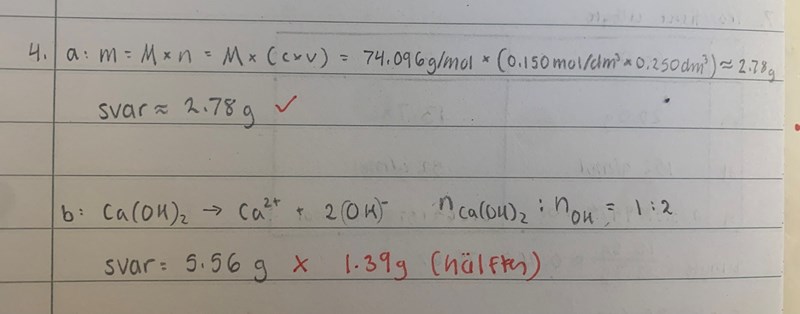 4. a: m = M × n = M × (c×v) = 74.096g/mol × (0.150mol/dm³ × 0.250dm³) ≈ 2.78g
svar ≈ 2.78 g ✓
b: Ca(OH)₂ → Ca²⁺ + 2(OH)⁻ n Ca(OH)₂ : n OH = 1:2
svar = 5.56 g × 1.39g (hälften)